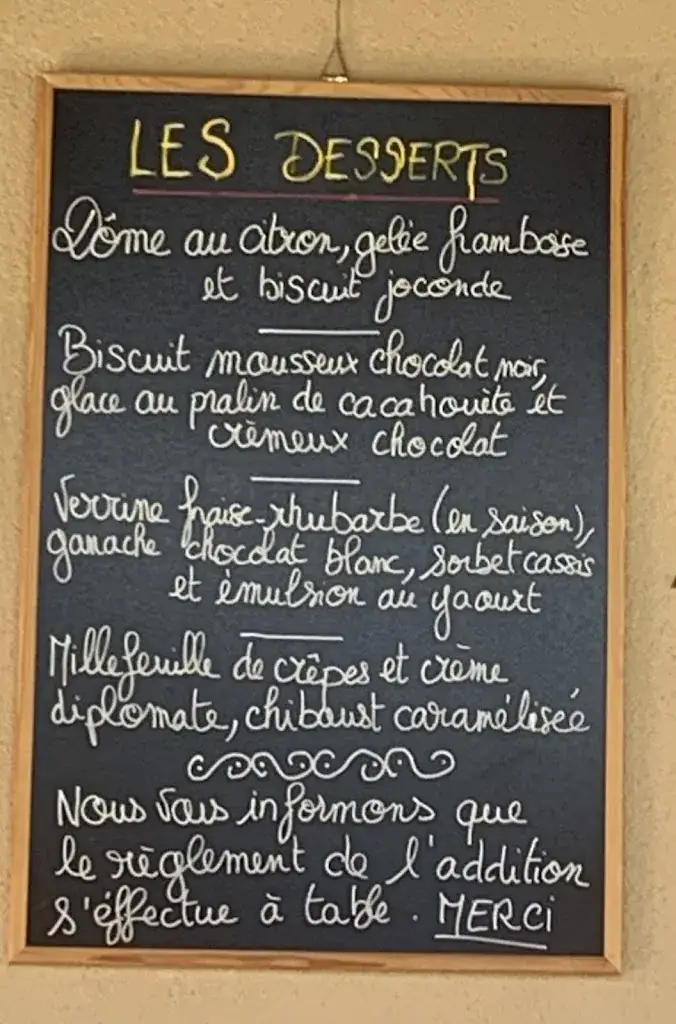 LES DESSERTS
Dôme au citron, gelée framboise
et biscuit joconde
Biscuit mousseux chocolat noir,
glace au pralin de cacahouète et
crèmeux chocolat
Verrine fraise-rhubarbe (en saison),
ganache chocolat blanc, sorbet cassis
et émulsion au yaourt
Millefeuille de crêpes et crème
diplomate, chiboust caramélisée
Nous vous informons que
le règlement de l'addition
s'éffectue à table. MERCi